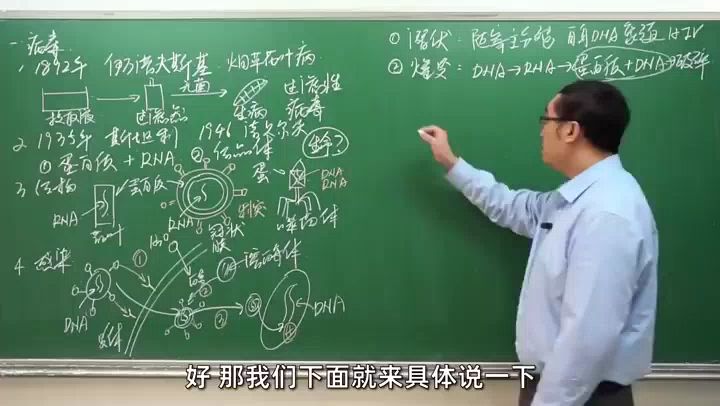 一 病毒
1. 1892年 伊万诺夫斯基 烟草花叶病
无菌
提取液
过滤后
生病
过滤性
病毒
2. 1935年 斯坦利 1946 诺贝尔奖
① 蛋白质 + RNA ② 结晶体
3. 结构
蛋白质
RNA
RNA
蛋
DNA
RNA
刺突
冠状
噬菌体
4. 感染
①
②
DNA
DNA
① 潜伏: 随宿主分裂 自身DNA HIV
② 爆发: DNA→RNA→蛋白质+DNA→破碎
好 那我们下面就来具体说一下